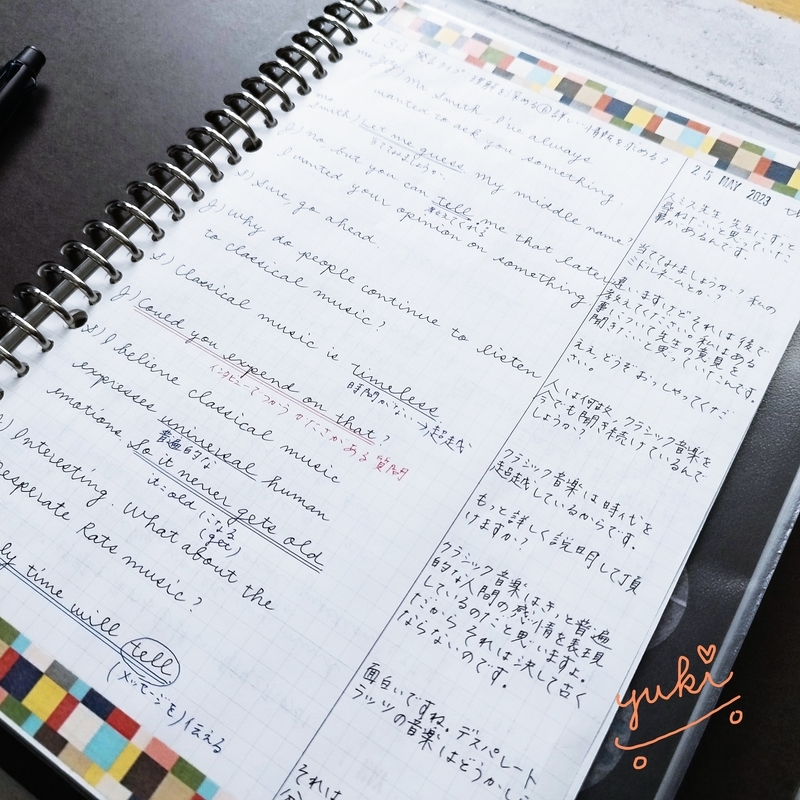 Mr. Smith, I've always
wanted to ask you something.
Smith) Let me guess, my middle name?
当ててみましょうか
J) No, but you can tell me that later.
教えてくれる
I wanted your opinion on something
S) Sure, go ahead.
J) Why do people continue to listen
to classical music?
S) Classical music is timeless
時間がない→超越
J) Could you expend on that?
インタビューでつかう かたさがある質問
S) I believe classical music
expresses universal human
普遍的な
emotions. So it never gets old
it=old になる
(get)
Interesting. What about the
Desperate Rats music?
ly time will tell
(メッセージを)伝える
25 MAY 2023
スミス先生、先生にずっと
尋ねたいと思っていた
事があるんです。
当ててみましょうか? 私の
ミドルネームとか?
違いますけどそれは後で
教えてください。私はある
事について先生の意見を
聞きたいと思っていたんです。
ええ、どうぞおっしゃってくだ
さい。
人は何故、クラシック音楽を
今でも聞き続けているんで
しょうか?
クラシック音楽は時代を
超越しているからです。
もっと詳しく説明して頂
けますか?
クラシック音楽はきっと普遍
的な人間の感情を表現
しているのだと思いますよ。
だから それは決して古く
ならないのです。
面白いですね。デスパレート
ラッツの音楽はどうかし
それは
yuki